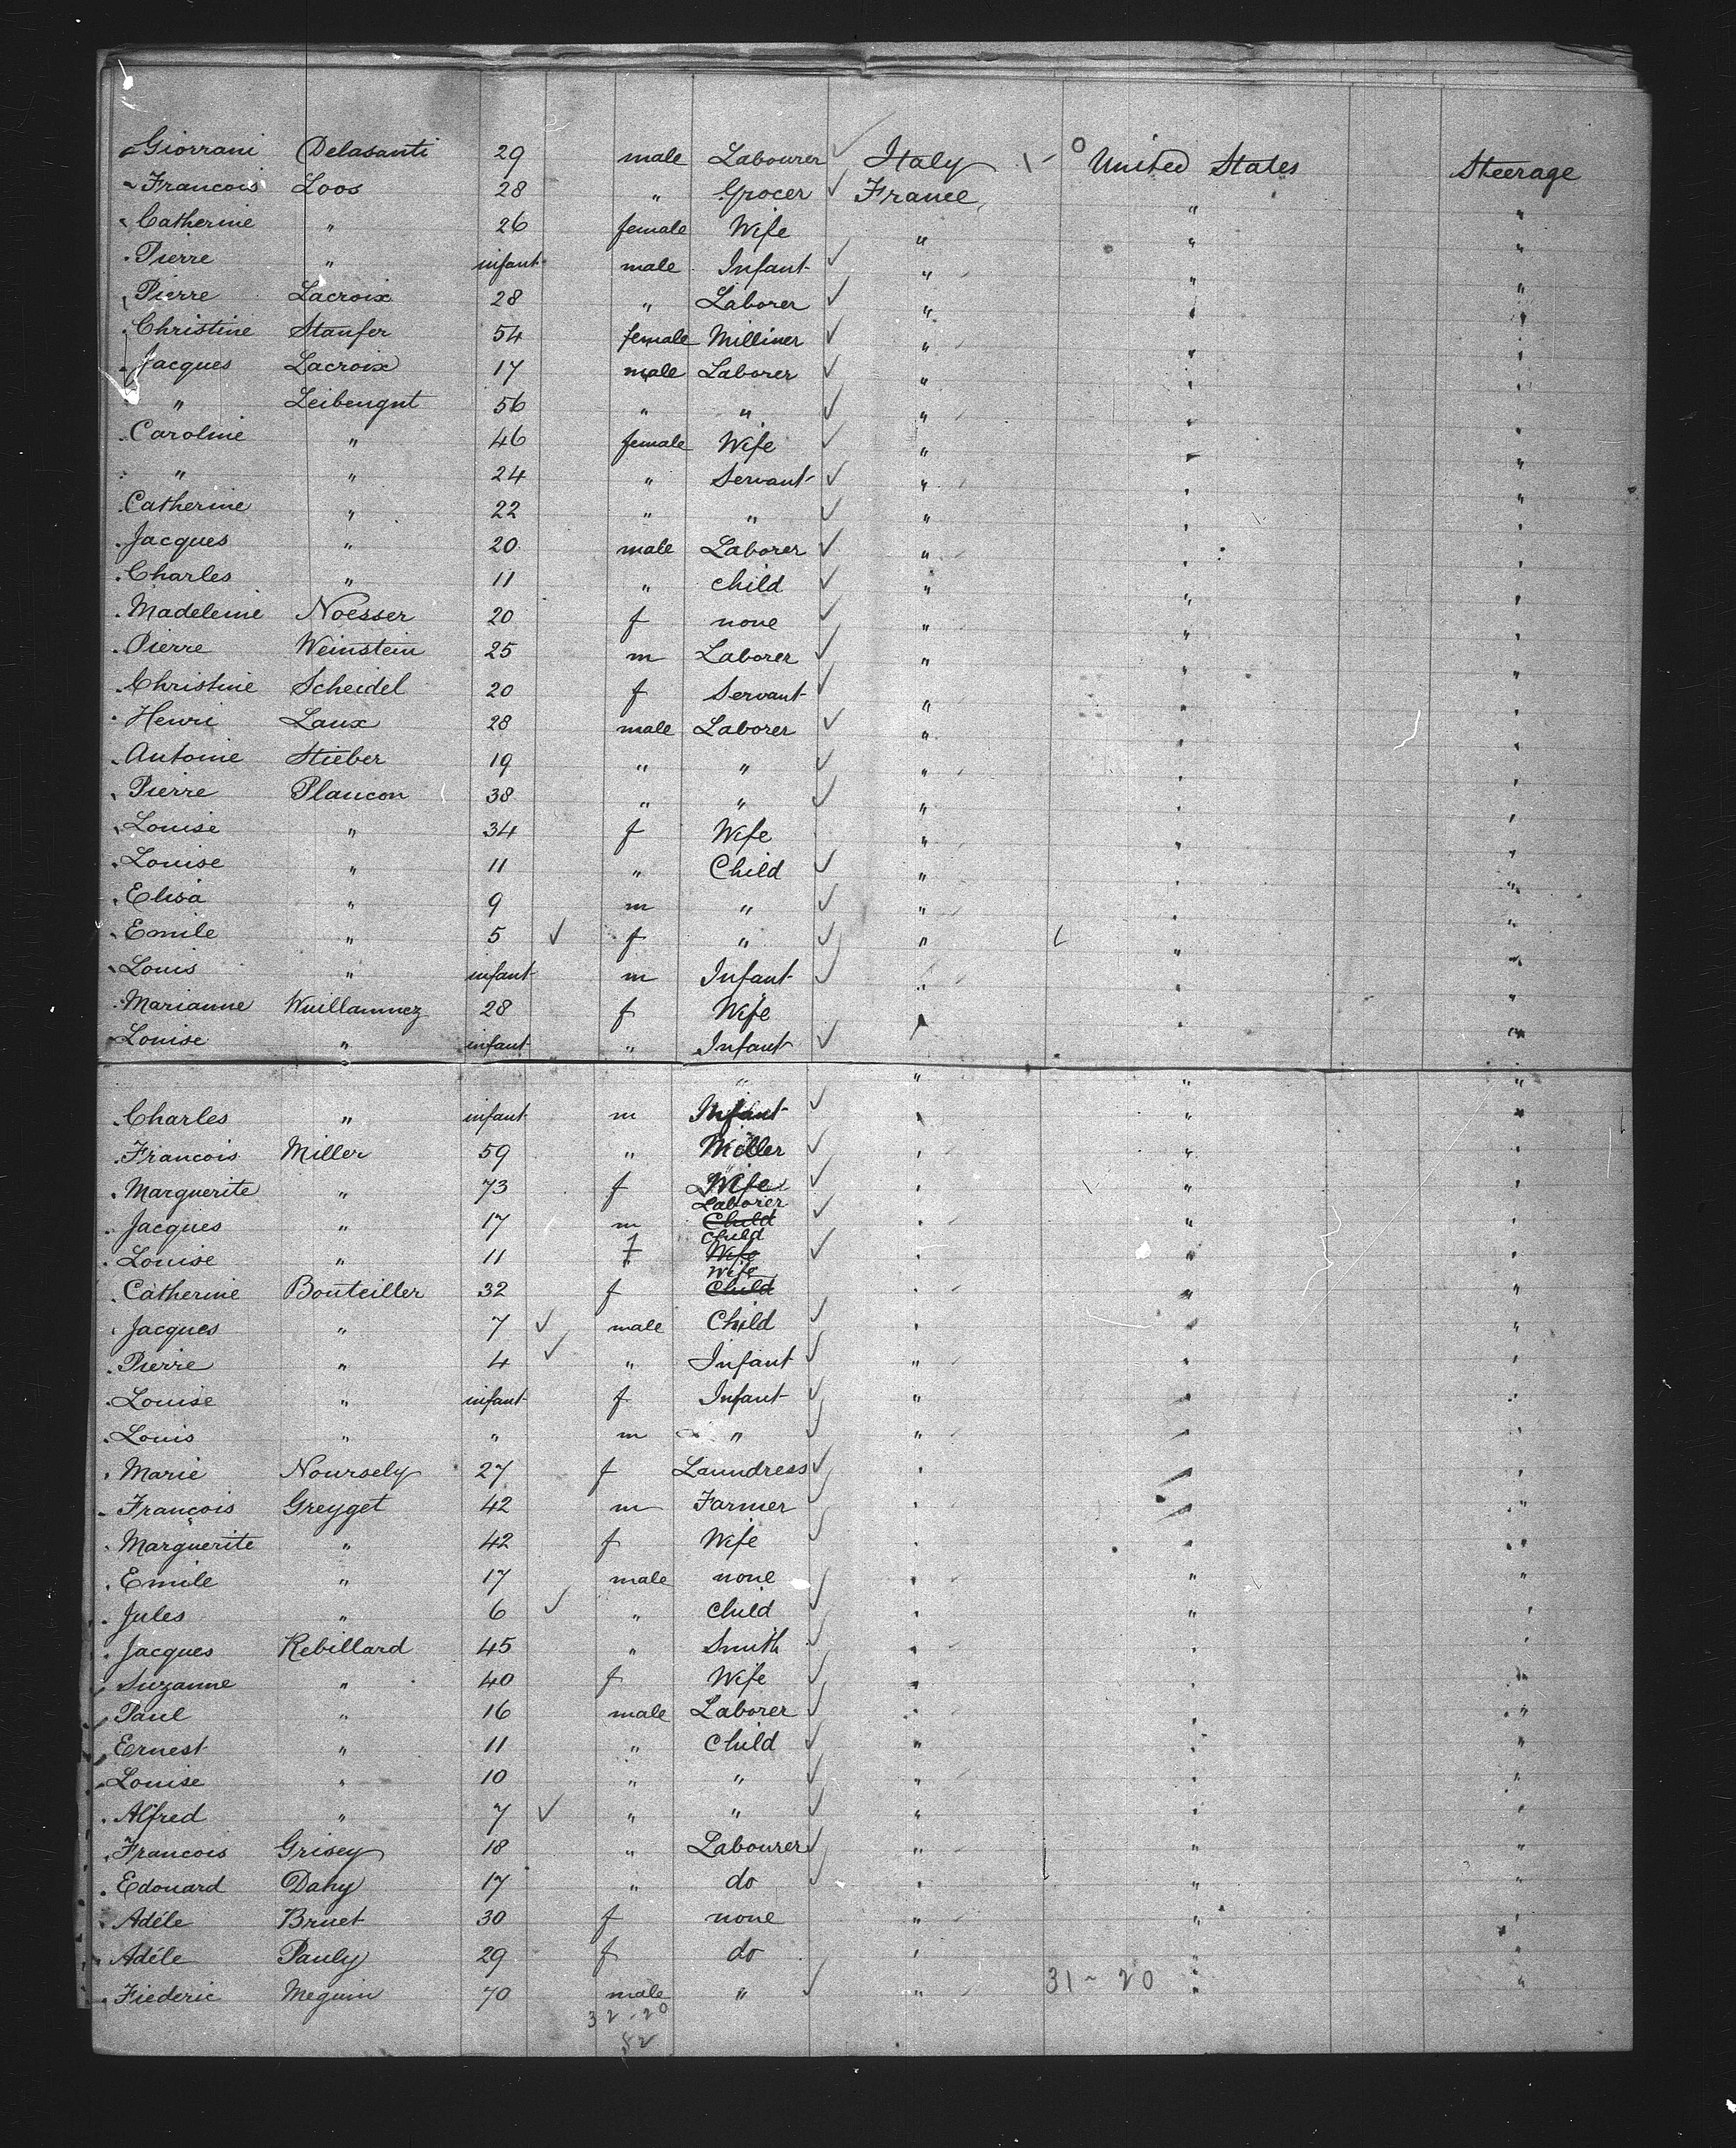 Giorrani Delasanti 29 male Labourer Italy United States Steerage
Francois Loos 28 " Grocer France " "
Catherine " 26 female Wife " " "
Pierre " infant male Infant " " "
Pierre Lacroix 28 " Laborer " " "
Christine Staufer 54 female Milliner " " "
Jacques Lacroix 17 male Laborer " " "
" Leibengut 56 " " " " "
Caroline " 46 female Wife " " "
" " 24 " Servant " " "
Catherine " 22 " " " " "
Jacques " 20 male Laborer " " "
Charles " 11 " child " " "
Madeleine Noesser 20 f none " " "
Pierre Weinstein 25 m Laborer " " "
Christine Scheidel 20 f Servant " " "
Henri Laux 28 male Laborer " " "
Antoine Stieber 19 " " " " "
Pierre Plancon 38 " " " " "
Louise " 34 f Wife " " "
Louise " 11 " Child " " "
Elisa " 9 m " " " "
Emile " 5 f " " " "
Louis " infant m Infant " " "
Marianne Wuillamnez 28 f Wife " " "
Louise " infant " Infant " " "
Charles " infant m Infant " " "
Francois Miller 59 " Miller " " "
Marguerite " 73 f Wife " " "
Jacques " 17 m Laborer Child " " "
Louise " 11 f Child Wife " " "
Catherine Bouteiller 32 f Wife Child " " "
Jacques " 7 male Child " " "
Pierre " 4 " Infant " " "
Louise " infant f Infant " " "
Louis " " m " " " "
Marie Noursely 27 f Laundress " " "
François Greyget 42 m Farmer " " "
Marguerite " 42 f Wife " " "
Emile " 17 male none " " "
Jules " 6 " child " " "
Jacques Rebillard 45 " Smith " " "
Suzanne " 40 f Wife " " "
Paul " 16 male Laborer " " "
Ernest " 11 " Child " " "
Louise " 10 " " " " "
Alfred " 7 " " " " "
Francois Grisey 18 " Labourer " " "
Edouard Dahy 17 " do " " "
Adéle Bruet 30 f none " " "
Adéle Pauly 29 f do " " "
Fiederic Meguin 70 male " " " "
31-20
32-20
52